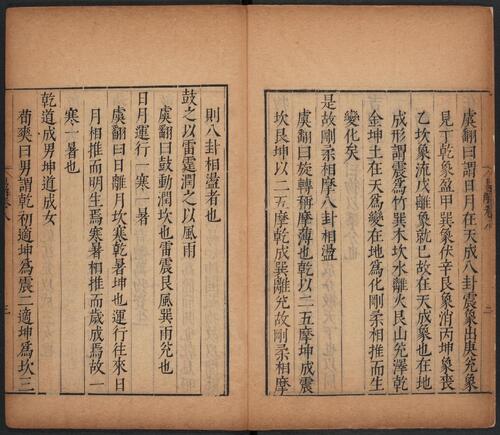 虞翻曰謂日月在天成八卦震象出庚兊象
見丁乾象盈甲巽象伏辛艮象消丙坤象喪
乙坎象流戊離象就巳故在天成象也在地
成形謂震爲竹巽木坎水離火艮山兊澤乾
金坤土在天爲變在地爲化剛柔相推而生
變化矣
是故剛柔相摩八卦相盪
虞翻曰旋轉稱摩薄也乾以二五摩坤成震
坎艮坤以二五摩乾成巽離兊故剛柔相摩
則八卦相盪者也
鼓之以雷霆潤之以風雨
虞翻曰鼓動潤坎也雷震艮風巽雨兊也
日月運行一寒一暑
虞翻曰日離月坎寒乾暑坤也運行往來日
月相推而明生焉寒暑相推而歲成焉故一
寒一暑也
乾道成男坤道成女
荀爽曰男謂乾初適坤爲震二適坤爲坎三